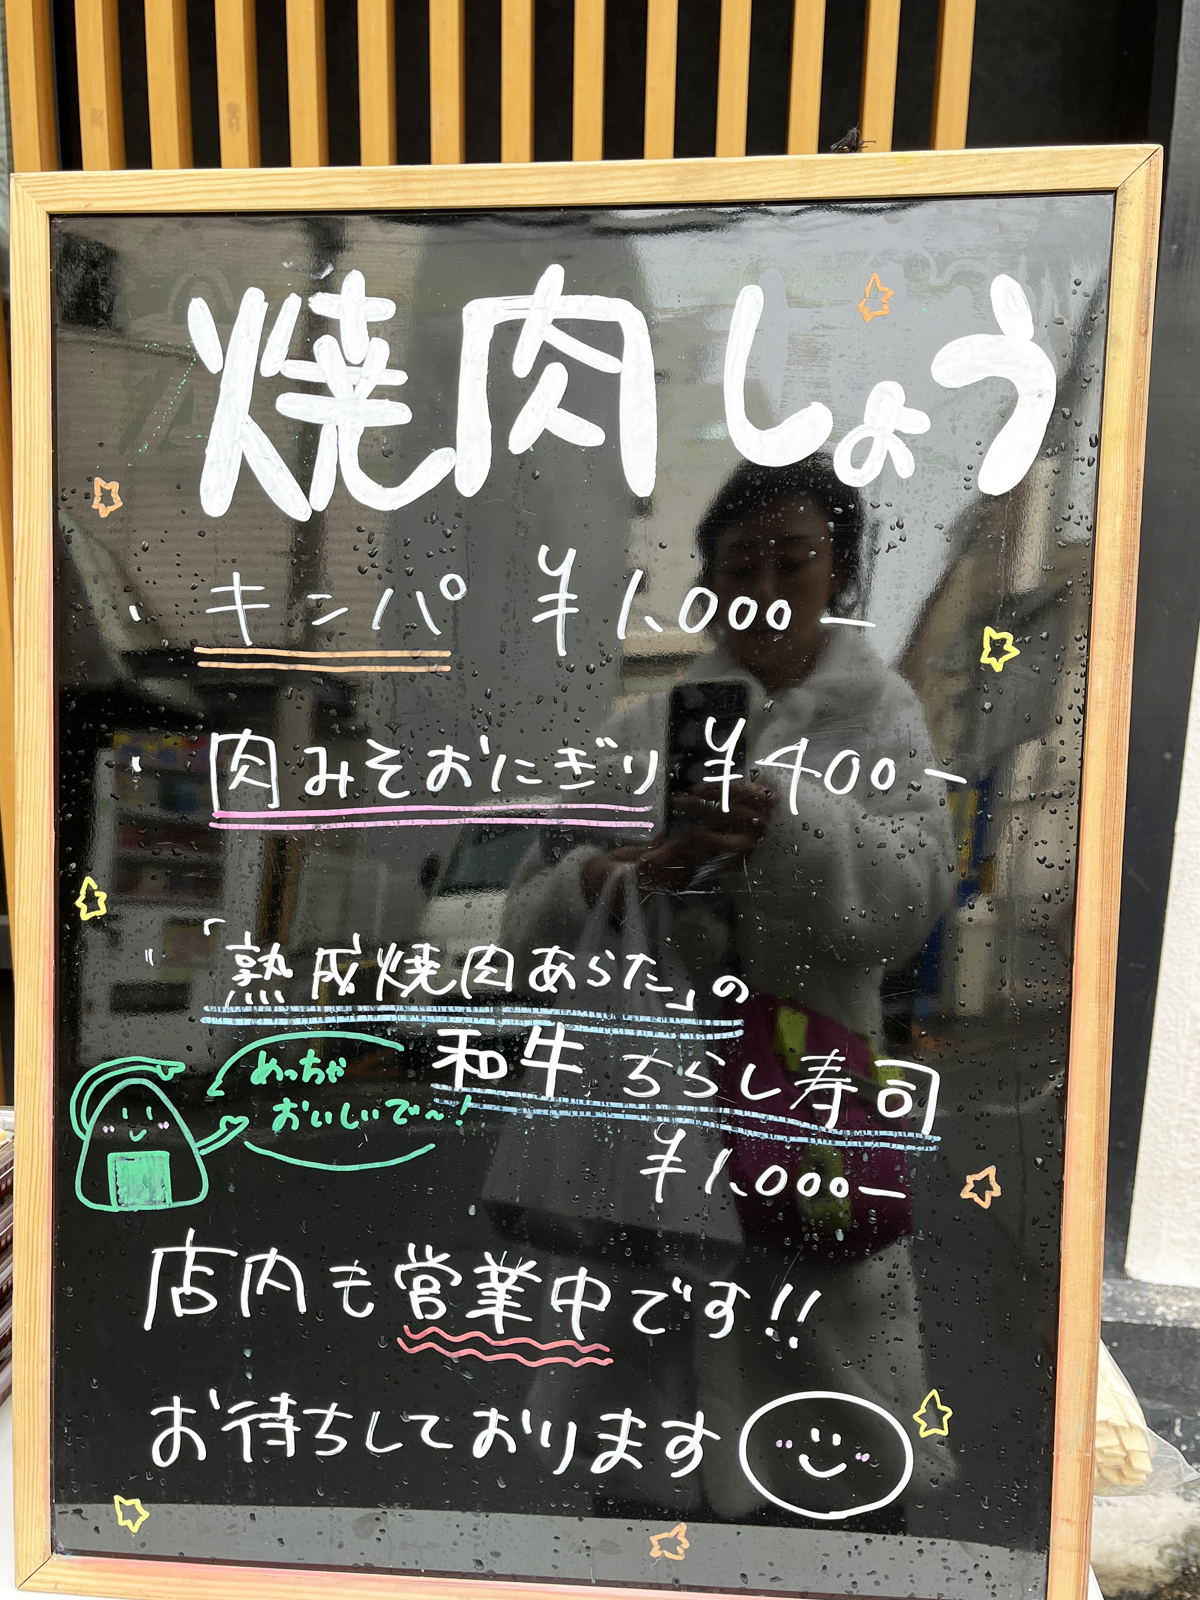 焼肉しょう
・キンパ ¥1,000ー
・肉みそおにぎり ¥400ー
・「熟成焼肉あらた」の
和牛ちらし寿司
¥1,000ー
めっちゃ
おいしいで〜!
店内も営業中です!!
お待ちしております